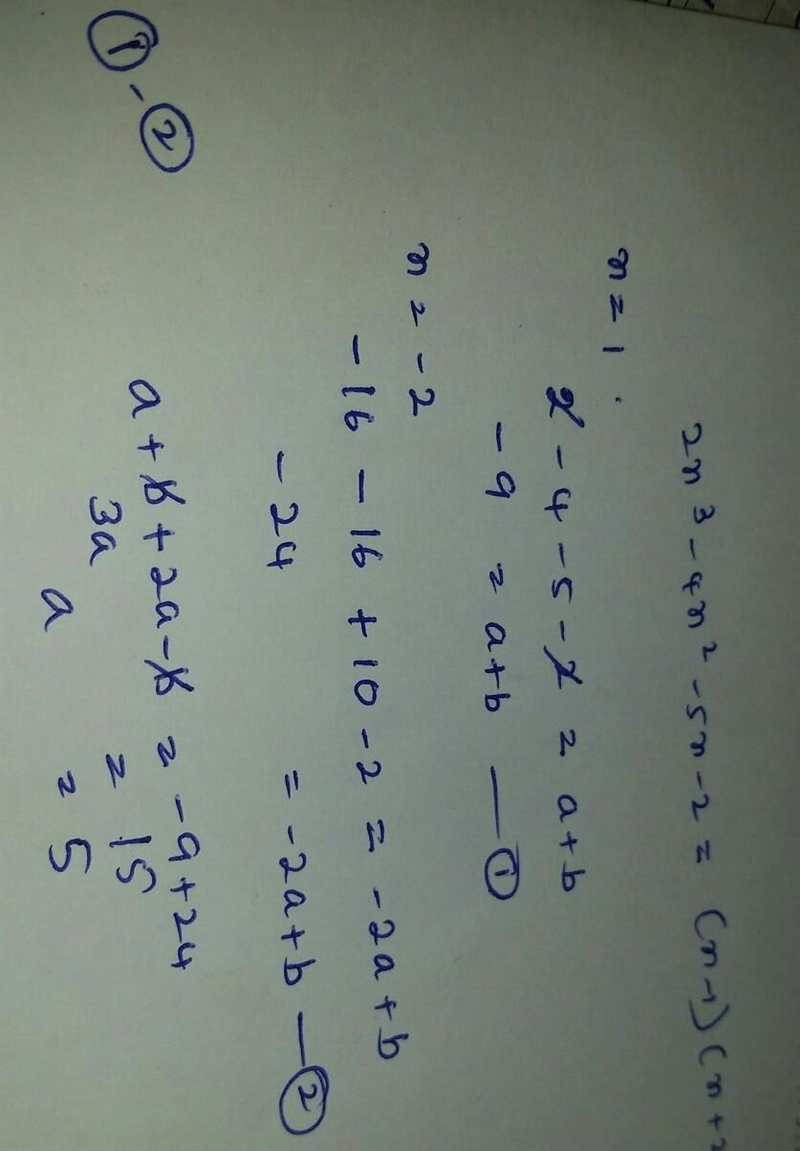 2x³ - 4x² - 5x - 2 = (x-1)(x+2
x = 1 .
2 - 4 - 5 - 2 = a+b
-9 = a+b — ①
x = -2
-16 - 16 + 10 - 2 = -2a+b
-24 = -2a+b — ②
① - ②
a+b+2a-b = -9+24
3a = 15
a = 5